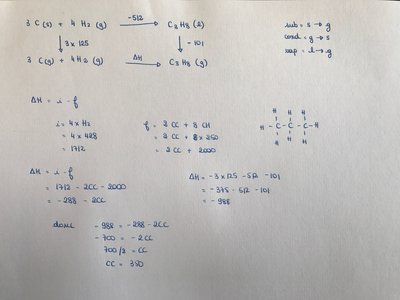 3 C(s) + 4 H2 (g) -512→ C3H8 (l)
↓ 3 x 125 ↓ -101
3 C(g) + 4H2 (g) ΔH→ C3H8 (g)
sub = s → g
cond = g → s
vap = l → g
ΔH = i - f
i = 4 x H2
= 4 x 428
= 1712
f = 2 CC + 8 CH
= 2 CC + 8 x 250
= 2 CC + 2000
H H H
H - C - C - C - H
H H H
ΔH = i - f
= 1712 - 2CC - 2000
= -288 - 2CC
ΔH = -3 x 125 - 512 - 101
= -375 - 512 - 101
= -988
donc - 988 = -288 - 2CC
- 700 = - 2CC
700/2 = CC
CC = 350